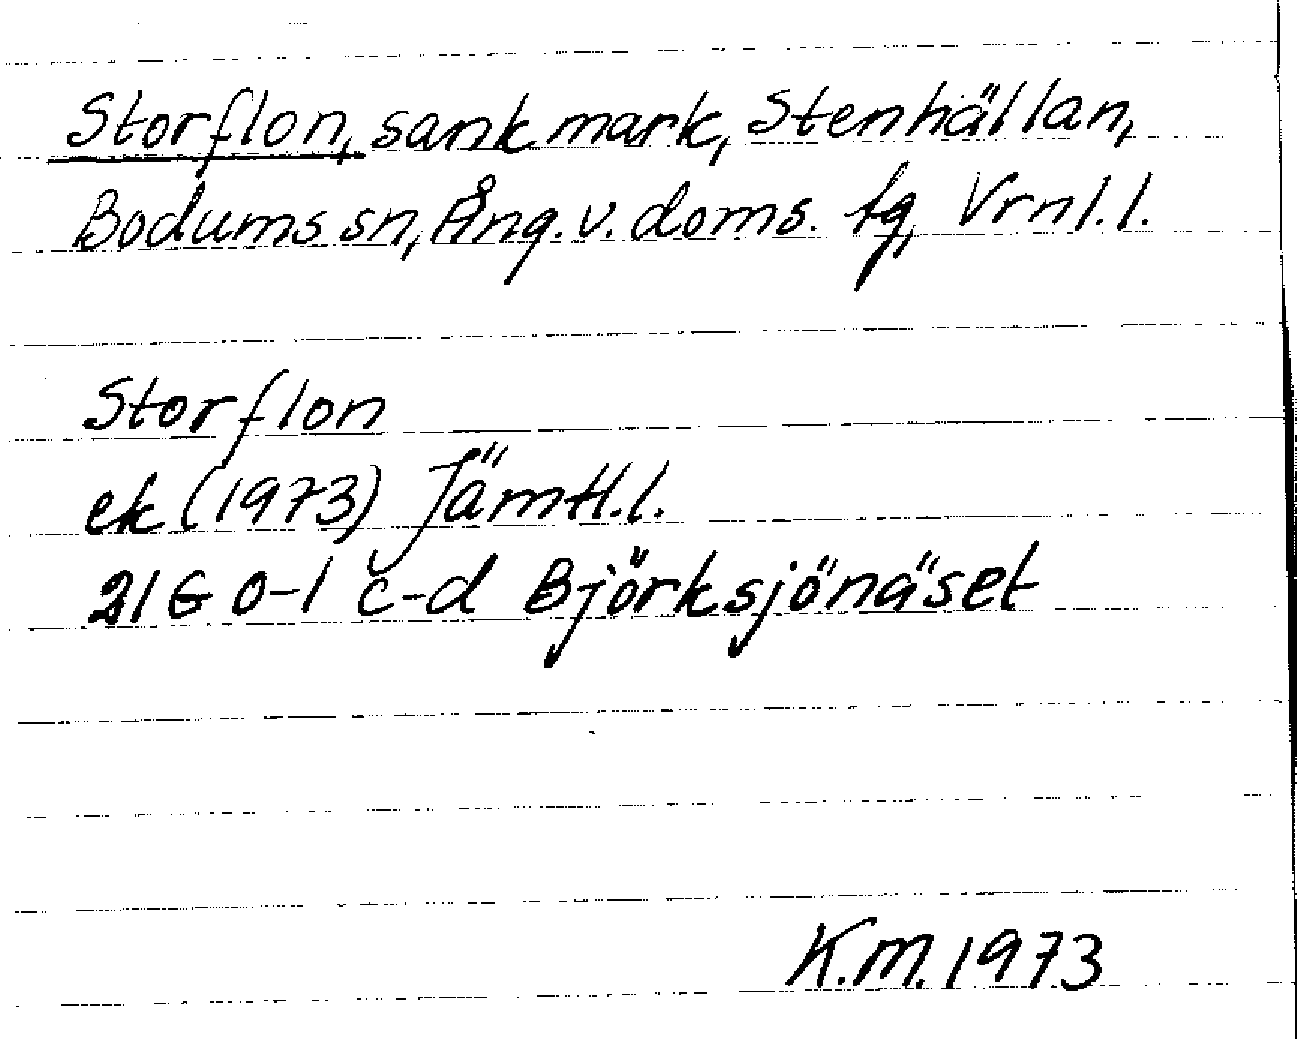 Storflon, sank mark, Stenhällan,
Bodums sn, Ång. v. doms. tg, Vrnl.l.
Storflon
ek (1973) Jämtl.l.
21G 0-1 c-d Björksjönäset
K.M. 1973